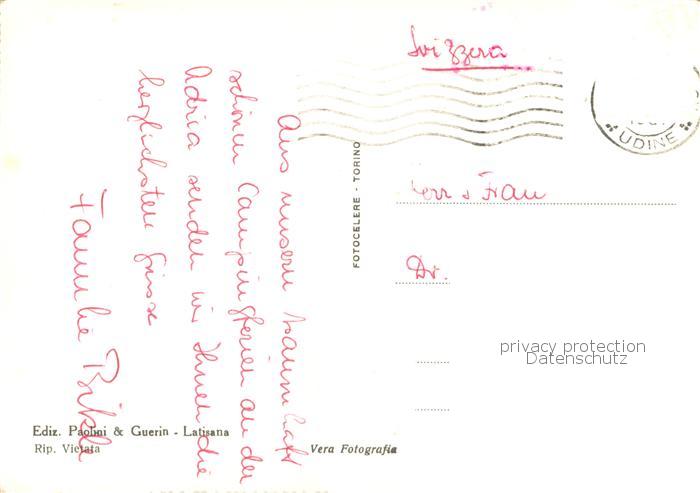 Svizzera
UDINE
Aus unsern traumhaft
schönen Campingferien an der
Adria senden wir Ihnen die
herzlichsten Grüsse
Familie
FOTOCELERE - TORINO
Herr & Frau
Dr.
privacy protection
Datenschutz
Ediz. Paolini & Guerin - Latisana
Rip. Vietata
Vera Fotografia